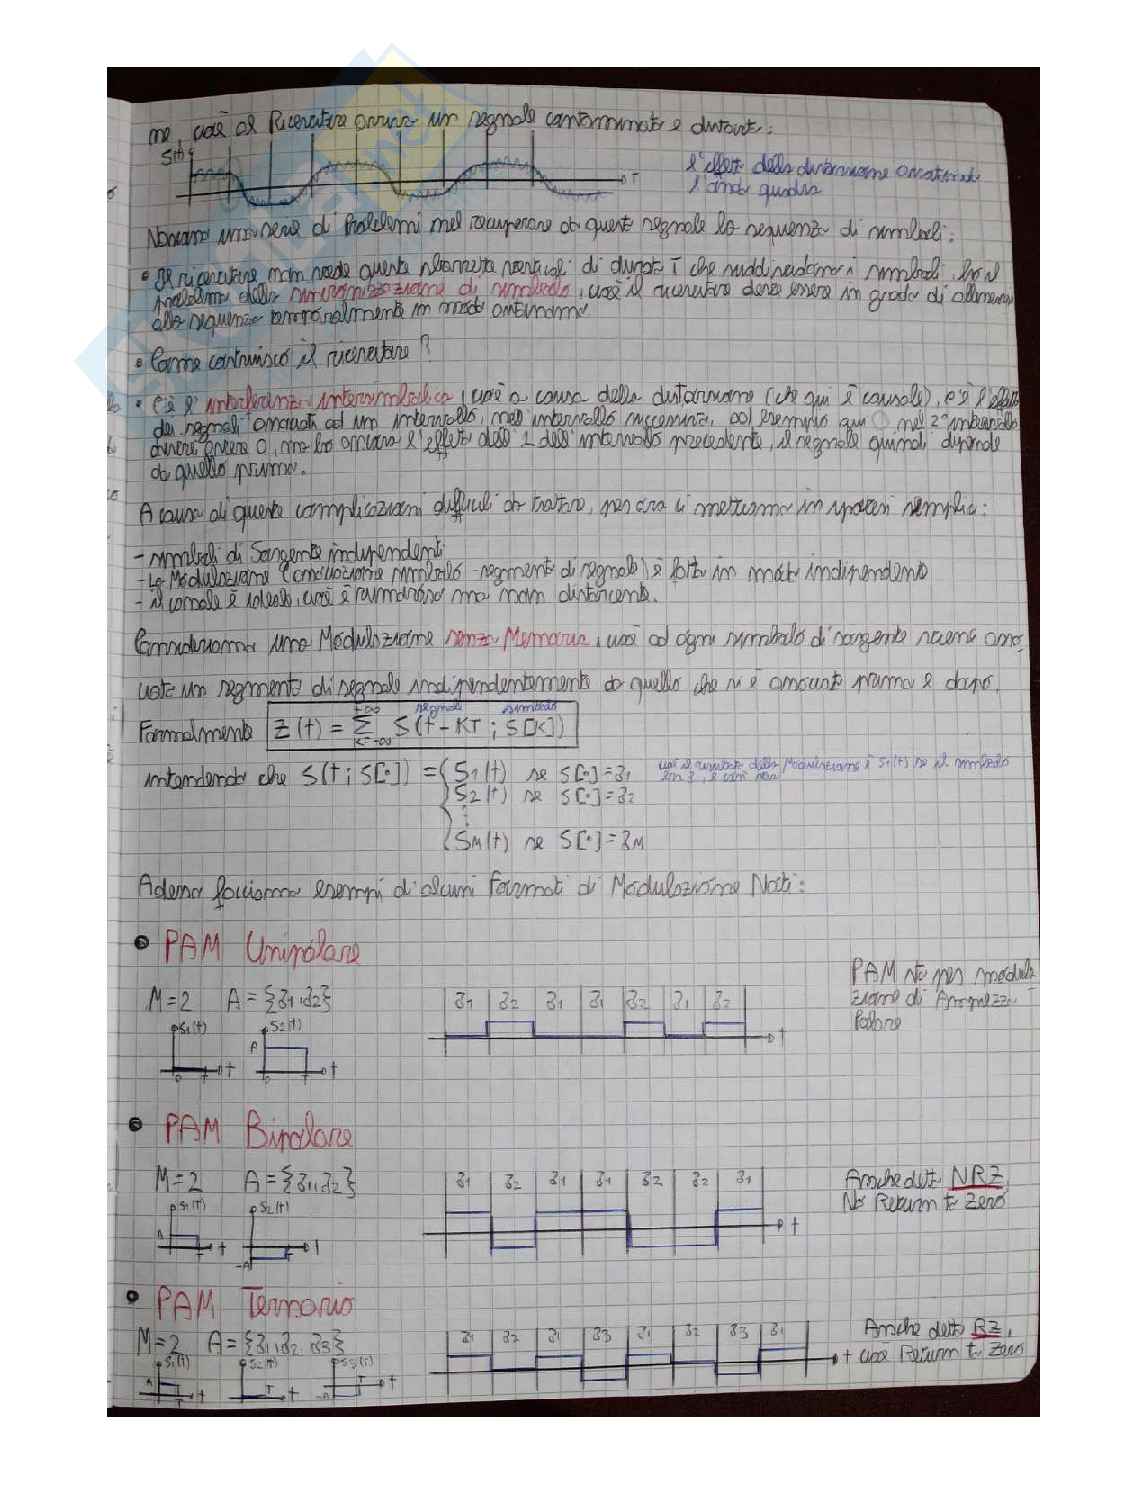 me, cioè al Ricevitore arriva un segnale contaminato e distorto:
S(t)
T
l'effetto della distorsione arrotonda
l'onda quadra
Nascono una serie di Problemi nel recuperare da questo segnale la sequenza di simboli:
• Il ricevitore non vede queste verticali di durata T che suddividono i simboli, ho il
problema della sincronizzazione di simbolo, cioè il ricevitore deve essere in grado di
alla sequenza temporalmente in modo autonomo
• Come costruisco il ricevitore?
• C'è l'interferenza intersimbolica, cioè a causa della distorsione (che qui è causale), c'è l'effetto
dei segnali associati ad un intervallo, nell'intervallo successivo, ad esempio qui nel 2° intervallo
dovrei avere 0, ma ho ancora l'effetto dell'1 dell'intervallo precedente, il segnale quindi dipende
da quello prima.
A causa di queste complicazioni difficili da trattare, per ora ci mettiamo in ipotesi semplici:
- simboli di Sorgente indipendenti
- La Modulazione (associazione simbolo - segmento di segnale) è fatta in modo indipendente
- il canale è ideale, cioè è rumoroso ma non distorcente.
Consideriamo una Modulazione senza Memoria, cioè ad ogni simbolo di sorgente viene asso,
ciato un segmento di segnale indipendentemente da quello che si è associato prima e dopo.
Formalmente Z(t) = Σ S(t - KT ; S[K])
+∞
K=-∞
segnale simbolo
intendendo che S(t ; S[•]) = { S1(t) se S[•]=z1
cioè il risultato della Modulazione è S1(t) se il simbolo
S2(t) se S[•]=z2
⋮
SM(t) se S[•]=zM
Adesso facciamo esempi di alcuni Formati di Modulazione Noti:
• PAM Unipolare
M=2 A={z1,z2}
S1(t) S2(t)
A
0 T t T t
z1 z2 z1 z1 z2 z1 z2
t
PAM sta per modula
zione di Ampiezza
• PAM Bipolare
M=2 A={z1,z2}
S1(t) S2(t)
A T t -A T t
z1 z2 z1 z1 z2 z2 z1
t
Anche detto NRZ,
No Return to Zero
• PAM Ternario
M=2 A={z1,z2,z3}
S1(t) S2(t) S3(t)
A T t T t -A T t
z1 z2 z1 z3 z1 z2 z3 z1
t
Anche detto RZ,
cioè Return to Zero